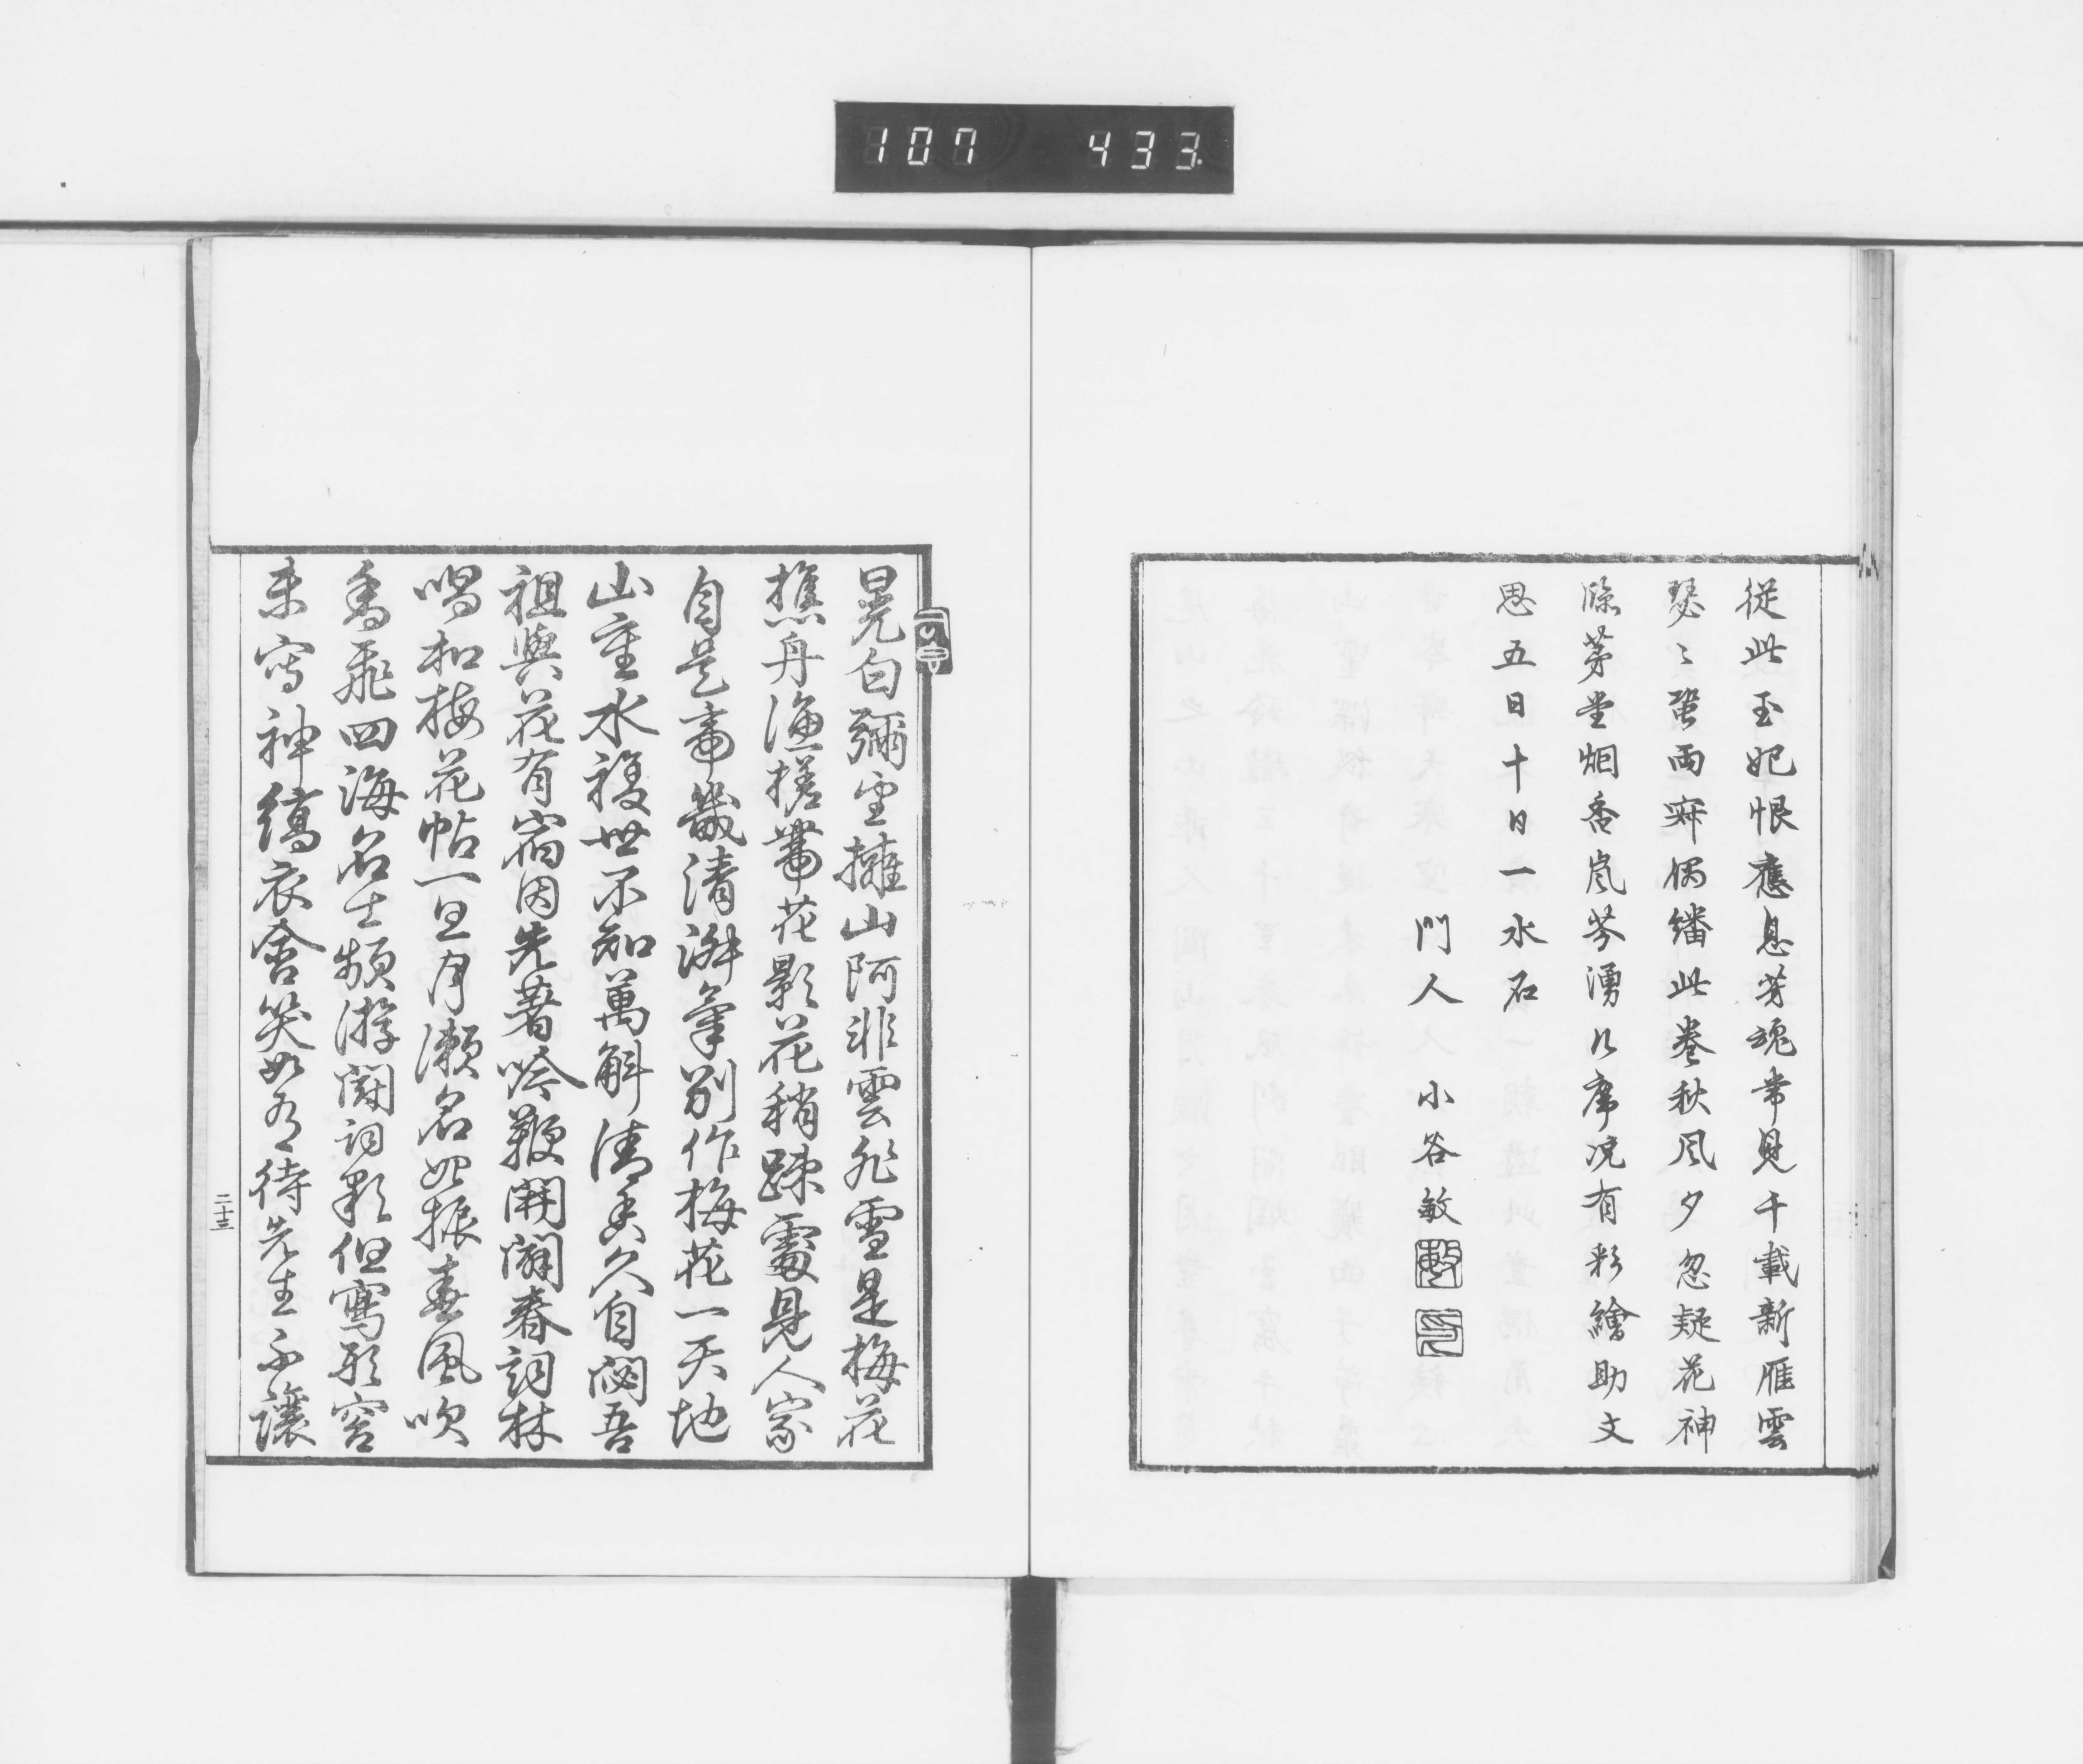 107 433
從此玉妃恨應息芳魂常見千載新雁雲
瑟々蛩雨寂偶繙此卷秋风夕忽疑花神
降茅堂烟香嵐芬湧几席况有彩繪助文
思五日十日一水石
門人 小谷敏
晃白彌空擁山阿非雲非雪是梅花
樵舟漁槎帶花影花稍疎處見人家
自是乾坤清淑氣別作梅花一天地
山重水複世不知萬斛清香久自閟吾
祖與花有宿因先著吟鞭開闢春詞林
唱和梅花帖一旦月瀨名始振春風吹
香飛四海名士頻游鬪詞彩但寫形容
未寫神縞衣含笑如有待先生不讓
二十三